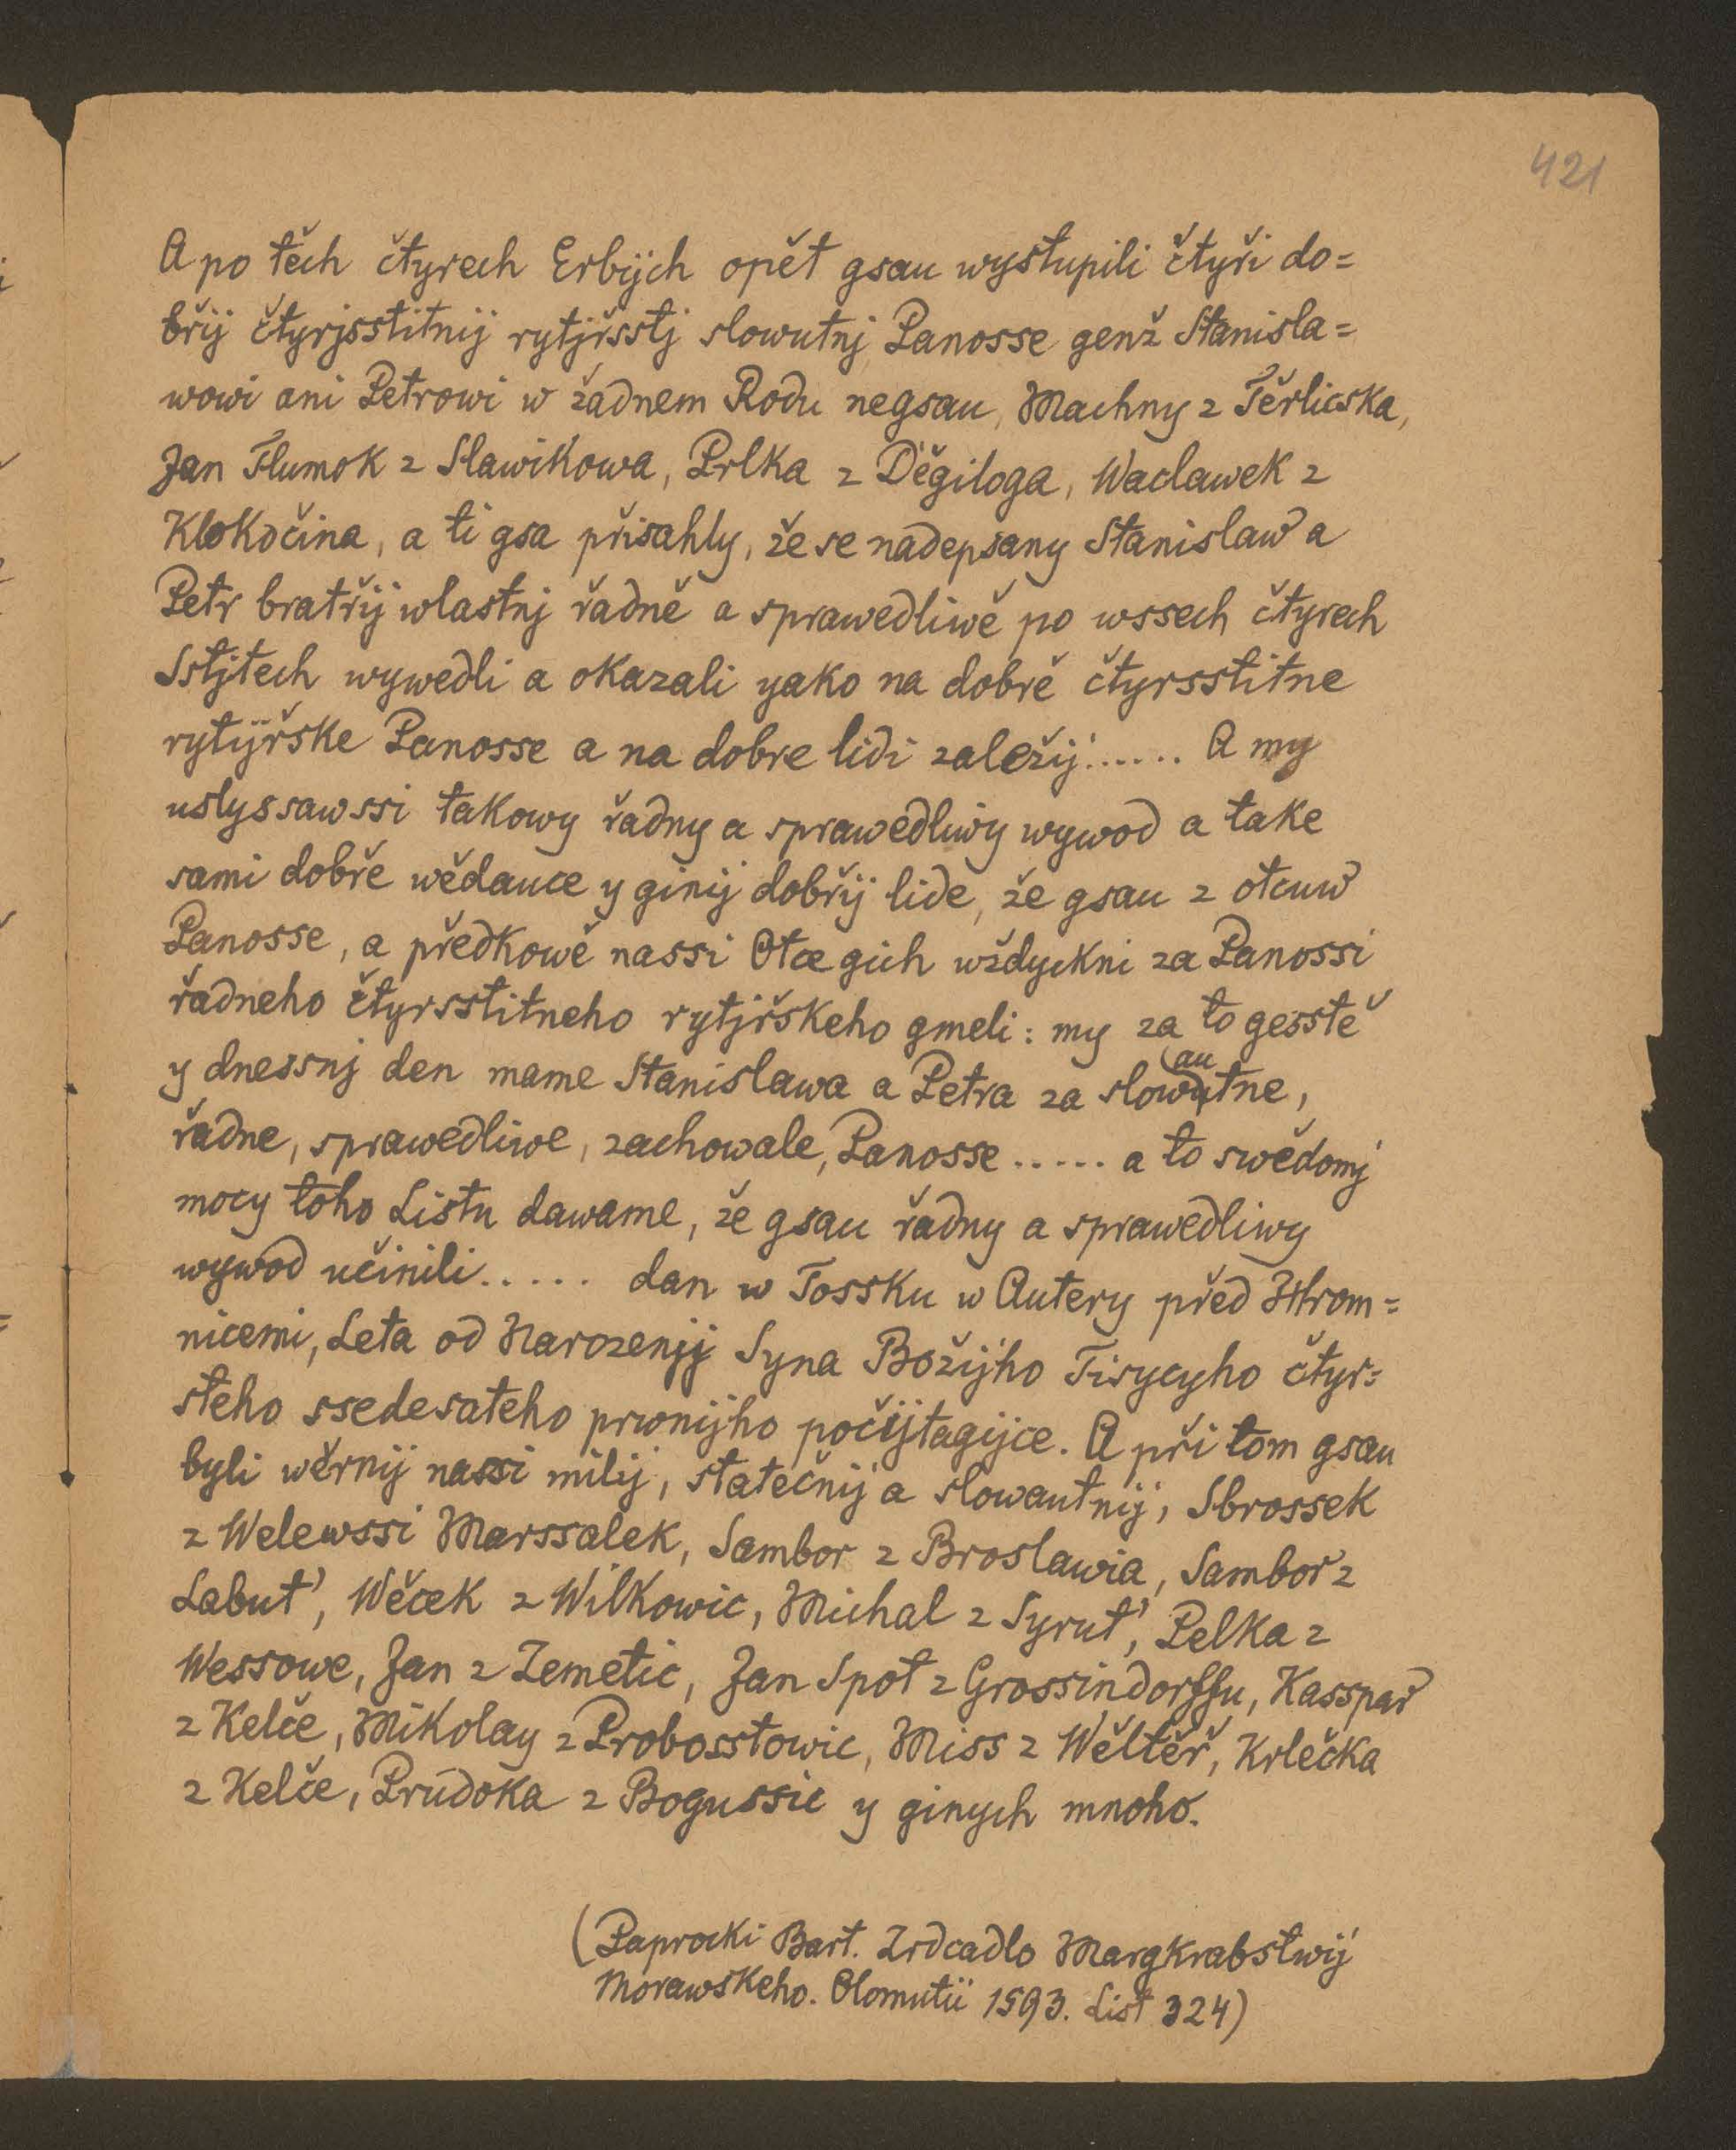 421
A po těch čtyrech Erbijch opět gsau wystupili čtyři do=
břij čtyrjsstitnij rytjřsstj slowutnj Panosse genž Stanisla=
wowi ani Petrowi w žadnem Rodu negsau, Machny z Těrlicska,
Jan Tlumok z Slawikowa, Prlka z Děgiloga, Waclawek z
Klokočina, a ti gsa přisahly, že se nadepsany Stanislaw a
Petr bratřij wlastnj řadně a sprawedliwě po wssech čtyrech
Sstjtech wywedli a okazali yako na dobrě čtyrsstitne
rytijřske Panosse a na dobre lidi zaležij...... A my
uslyssawssi takowy řadny a sprawedliwy wywod a take
sami dobře wědauce y ginij dobřij lide, že gsau z otcuw
Panosse, a předkowě nassi Otce gich wždyckni za Panossi
řadneho čtyrsstitneho rytjřskeho gmeli: my za to gesstě
y dnessnj den mame Stanislawa a Petra za slowutne, (au
řadne, sprawedliwe, zachowale, Panosse ..... a to swědomj
mocy toho Listu dawame, že gsau řadny a sprawedliwy
wywod učinili..... dan w Tossku w Autery před Hrom=
nicemi, Leta od Narozenjj Syna Božijho Tisycyho čtyr=
steho ssedesateho prwnijho počijtagijce. A při tom gsau
byli wěrnij nassi milij, statečnij a slowautnij, Sbrossek
z Welewssi Marssalek, Sambor z Broslawia, Sambor z
Labut', Wěcek z Wilkowic, Michal z Syrut', Pelka z
Wessowe, Jan z Zemetic, Jan Spot z Grossindorffu, Kasspar
z Kelče, Mikolay z Probosstowic, Miss z Wěltěř, Krlečka
z Kelče, Prudoka z Bogussic y ginych mnoho.
(Paprocki Bart. Zrdcadlo Margkrabstwij
Morawskeho. Olomutii 1593. List 324)